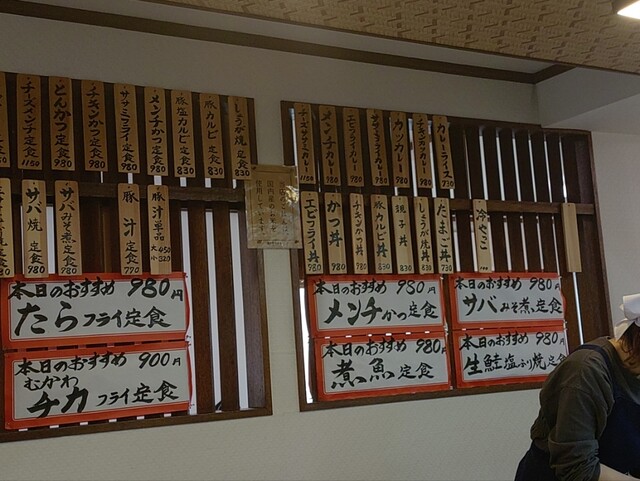 しょうが焼定食 830
豚カルビ定食 830
豚塩カルビ定食
メンチかつ定食 980
ササミフライ定食 980
チキンかつ定食 980
とんかつ定食 980
チーズメンチ定食 1150
豚汁単品 大450 小320
豚汁定食 770
サバみそ煮定食 980
サバ焼定食 980
本日のおすすめ 980円
たらフライ定食
本日のおすすめ 900円
むかわ
チカフライ定食
カレーライス 730
チキンカツカレー 980
カツカレー 980
ササミフライカレー 980
エビフライカレー 980
メンチカレー 980
チーズササミカレー 1150
冷やっこ
たまご丼 730
しょうが焼丼 830
親子丼 830
豚カルビ丼 830
チキンかつ丼 980
かつ丼 980
エビフライ丼 980
本日のおすすめ 980円
メンチかつ定食
本日のおすすめ 980円
サバみそ煮定食
本日のおすすめ 980円
煮魚定食
本日のおすすめ 980円
生鮭塩ふり焼定食